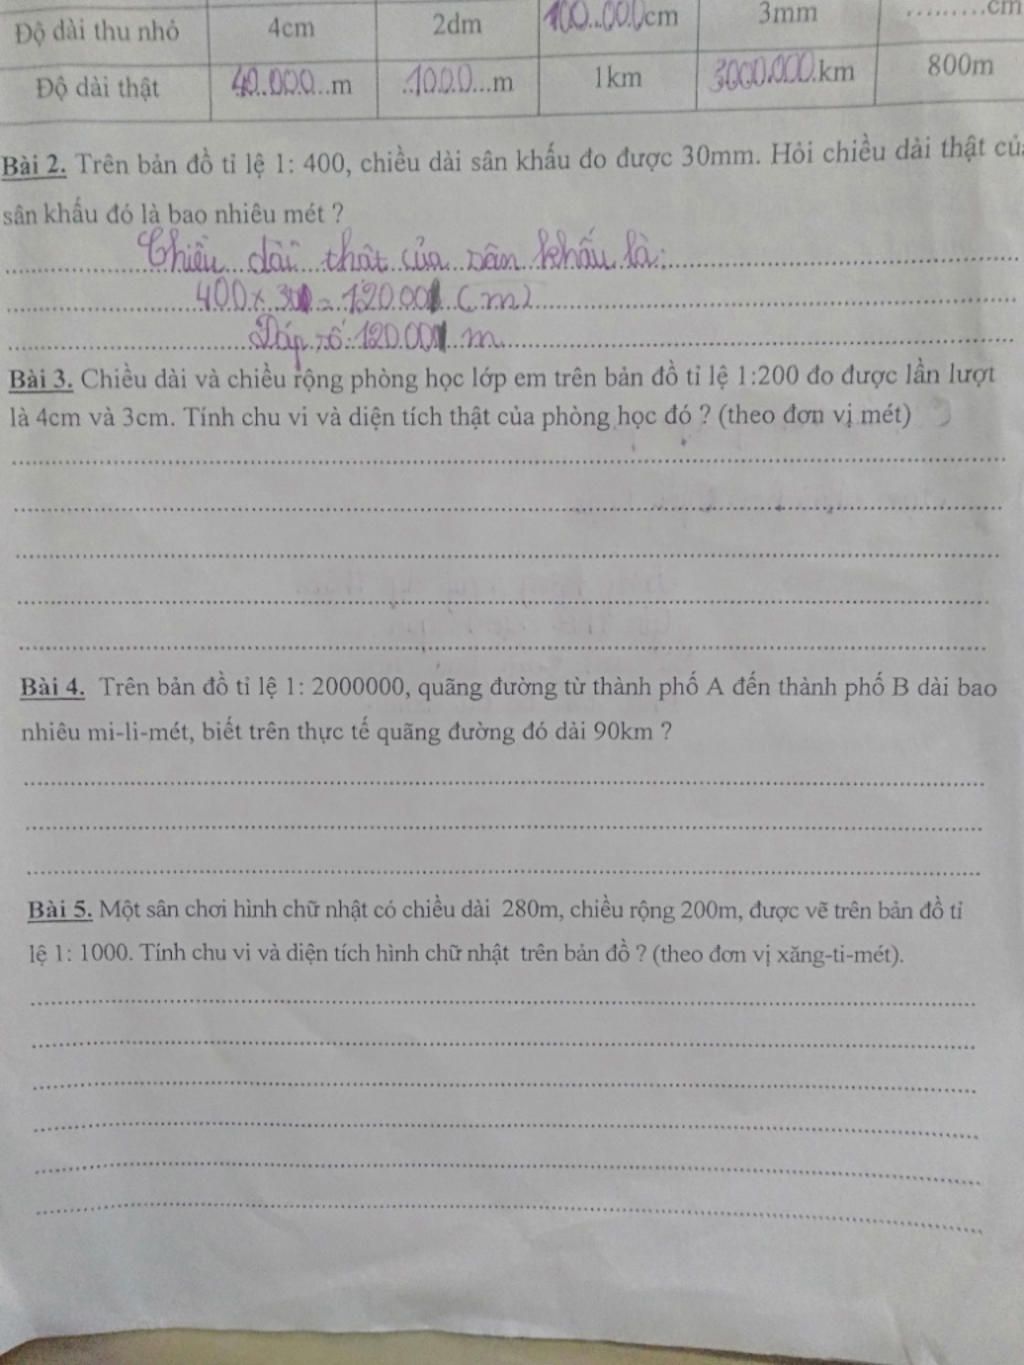 Độ dài thu nhỏ 4cm 2dm 100..000cm 3mm .........cm
Độ dài thật 40..000...m ..1000...m 1km 3000.000.km 800m
Bài 2. Trên bản đồ tỉ lệ 1: 400, chiều dài sân khấu đo được 30mm. Hỏi chiều dài thật của
sân khấu đó là bao nhiêu mét ?
Chiều dài thật của sân khấu là:
400 x = (m)
Đáp số: m
Bài 3. Chiều dài và chiều rộng phòng học lớp em trên bản đồ tỉ lệ 1:200 đo được lần lượt
là 4cm và 3cm. Tính chu vi và diện tích thật của phòng học đó ? (theo đơn vị mét)
Bài 4. Trên bản đồ tỉ lệ 1: 2000000, quãng đường từ thành phố A đến thành phố B dài bao
nhiêu mi-li-mét, biết trên thực tế quãng đường đó dài 90km ?
Bài 5. Một sân chơi hình chữ nhật có chiều dài 280m, chiều rộng 200m, được vẽ trên bản đồ tỉ
lệ 1: 1000. Tính chu vi và diện tích hình chữ nhật trên bản đồ ? (theo đơn vị xăng-ti-mét).